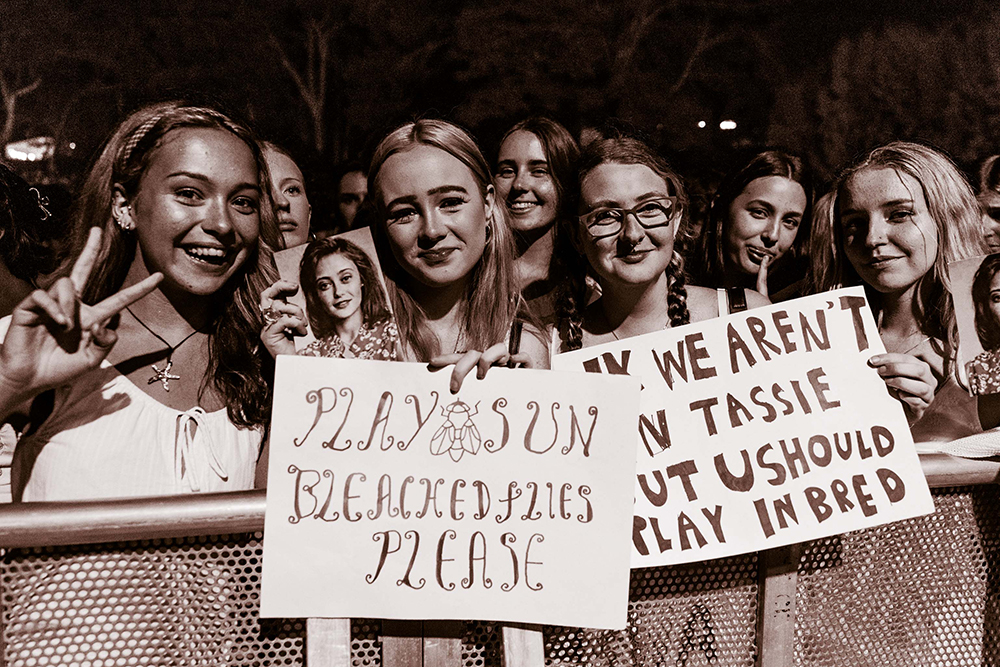 PLAY SUN
BLEACHED FLIES
PLEASE
IK WE AREN'T
IN TASSIE
BUT U SHOULD
PLAY IN BRED